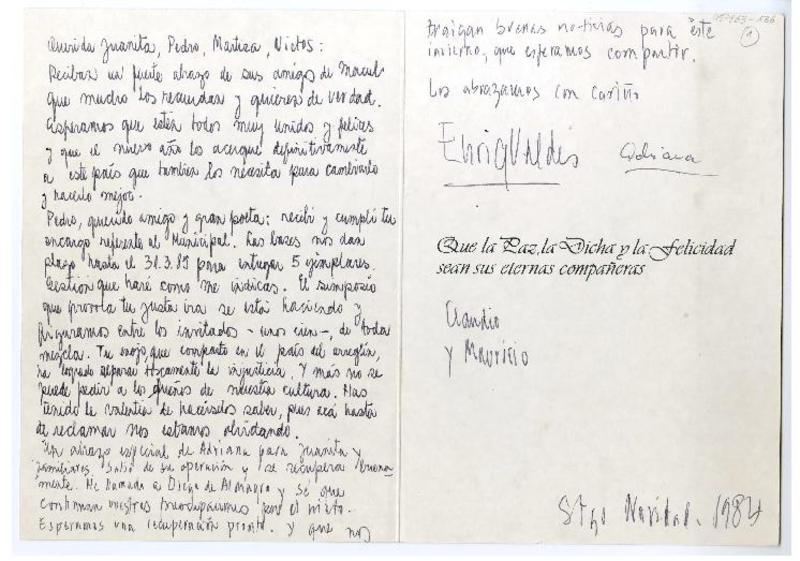 Querida Juanita, Pedro, Maritza, Nietos:
Reciban un fuerte abrazo de sus amigos de Macul
que mucho los recuerdan y quieren de verdad.
Esperamos que estén todos muy unidos y felices
y que el nuevo año los acerque definitivamente
a este país que también los necesita para cambiarlo
y hacerlo mejor.
Pedro, querido amigo y gran poeta: recibí y cumplí tu
encargo referente al Municipal. Las bases nos dan
plazo hasta el 31.3.85 para entregar 5 ejemplares.
Gestión que haré como me indicas. El simposio
que provoca tu justa ira se está haciendo y
figuramos entre los invitados - unos cien -, de toda
mezcla. Tu enojo, que comparto en el país del arreglín,
ha logrado reparar toscamente la injusticia. Y más no se
puede pedir a los dueños de nuestra cultura. Has
tenido la valentía de hacérselos saber, pues acá hasta
de reclamar nos estamos olvidando.
Un abrazo especial de Adriana para Juanita y
familiares. Salió de su operación y se recupera buena-
mente. He llamado a Diego de Almagro y sé que
continúan nuestras preocupaciones por el nieto.
Esperamos una recuperación pronta. Y que nos
traigan buenas noticias para este
invierno, que esperamos compartir.
Los abrazamos con cariño
EnriqValdés Adriana
Que la Paz, la Dicha y la Felicidad
sean sus eternas compañeras
Claudio
y Mauricio
Stgo Navidad. 1984
(1)